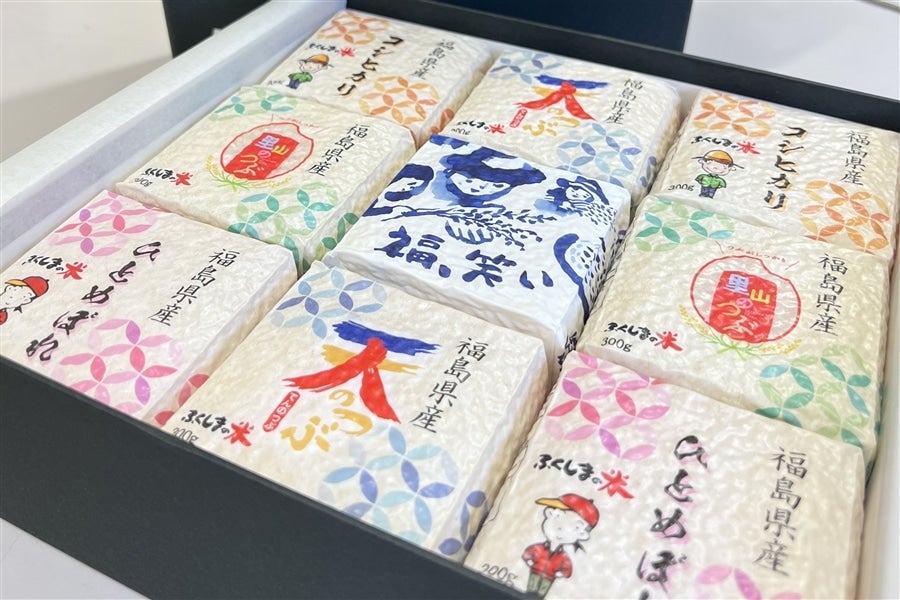 福島県産
コシヒカリ
ふくしまの米
300g
福島県産
天のつぶ
ふくしまの米
300g
福島県産
コシヒカリ
ふくしまの米
300g
福島県産
里山のつぶ
ふくしまの米
300g
福、笑い
福島県産
里山のつぶ
ふくしまの米
300g
福島県産
ひとめぼれ
ふくしまの米
福島県産
天のつぶ
てんのつぶ
ふくしまの米
300g
福島県産
ひとめぼれ
ふくしまの米
300g